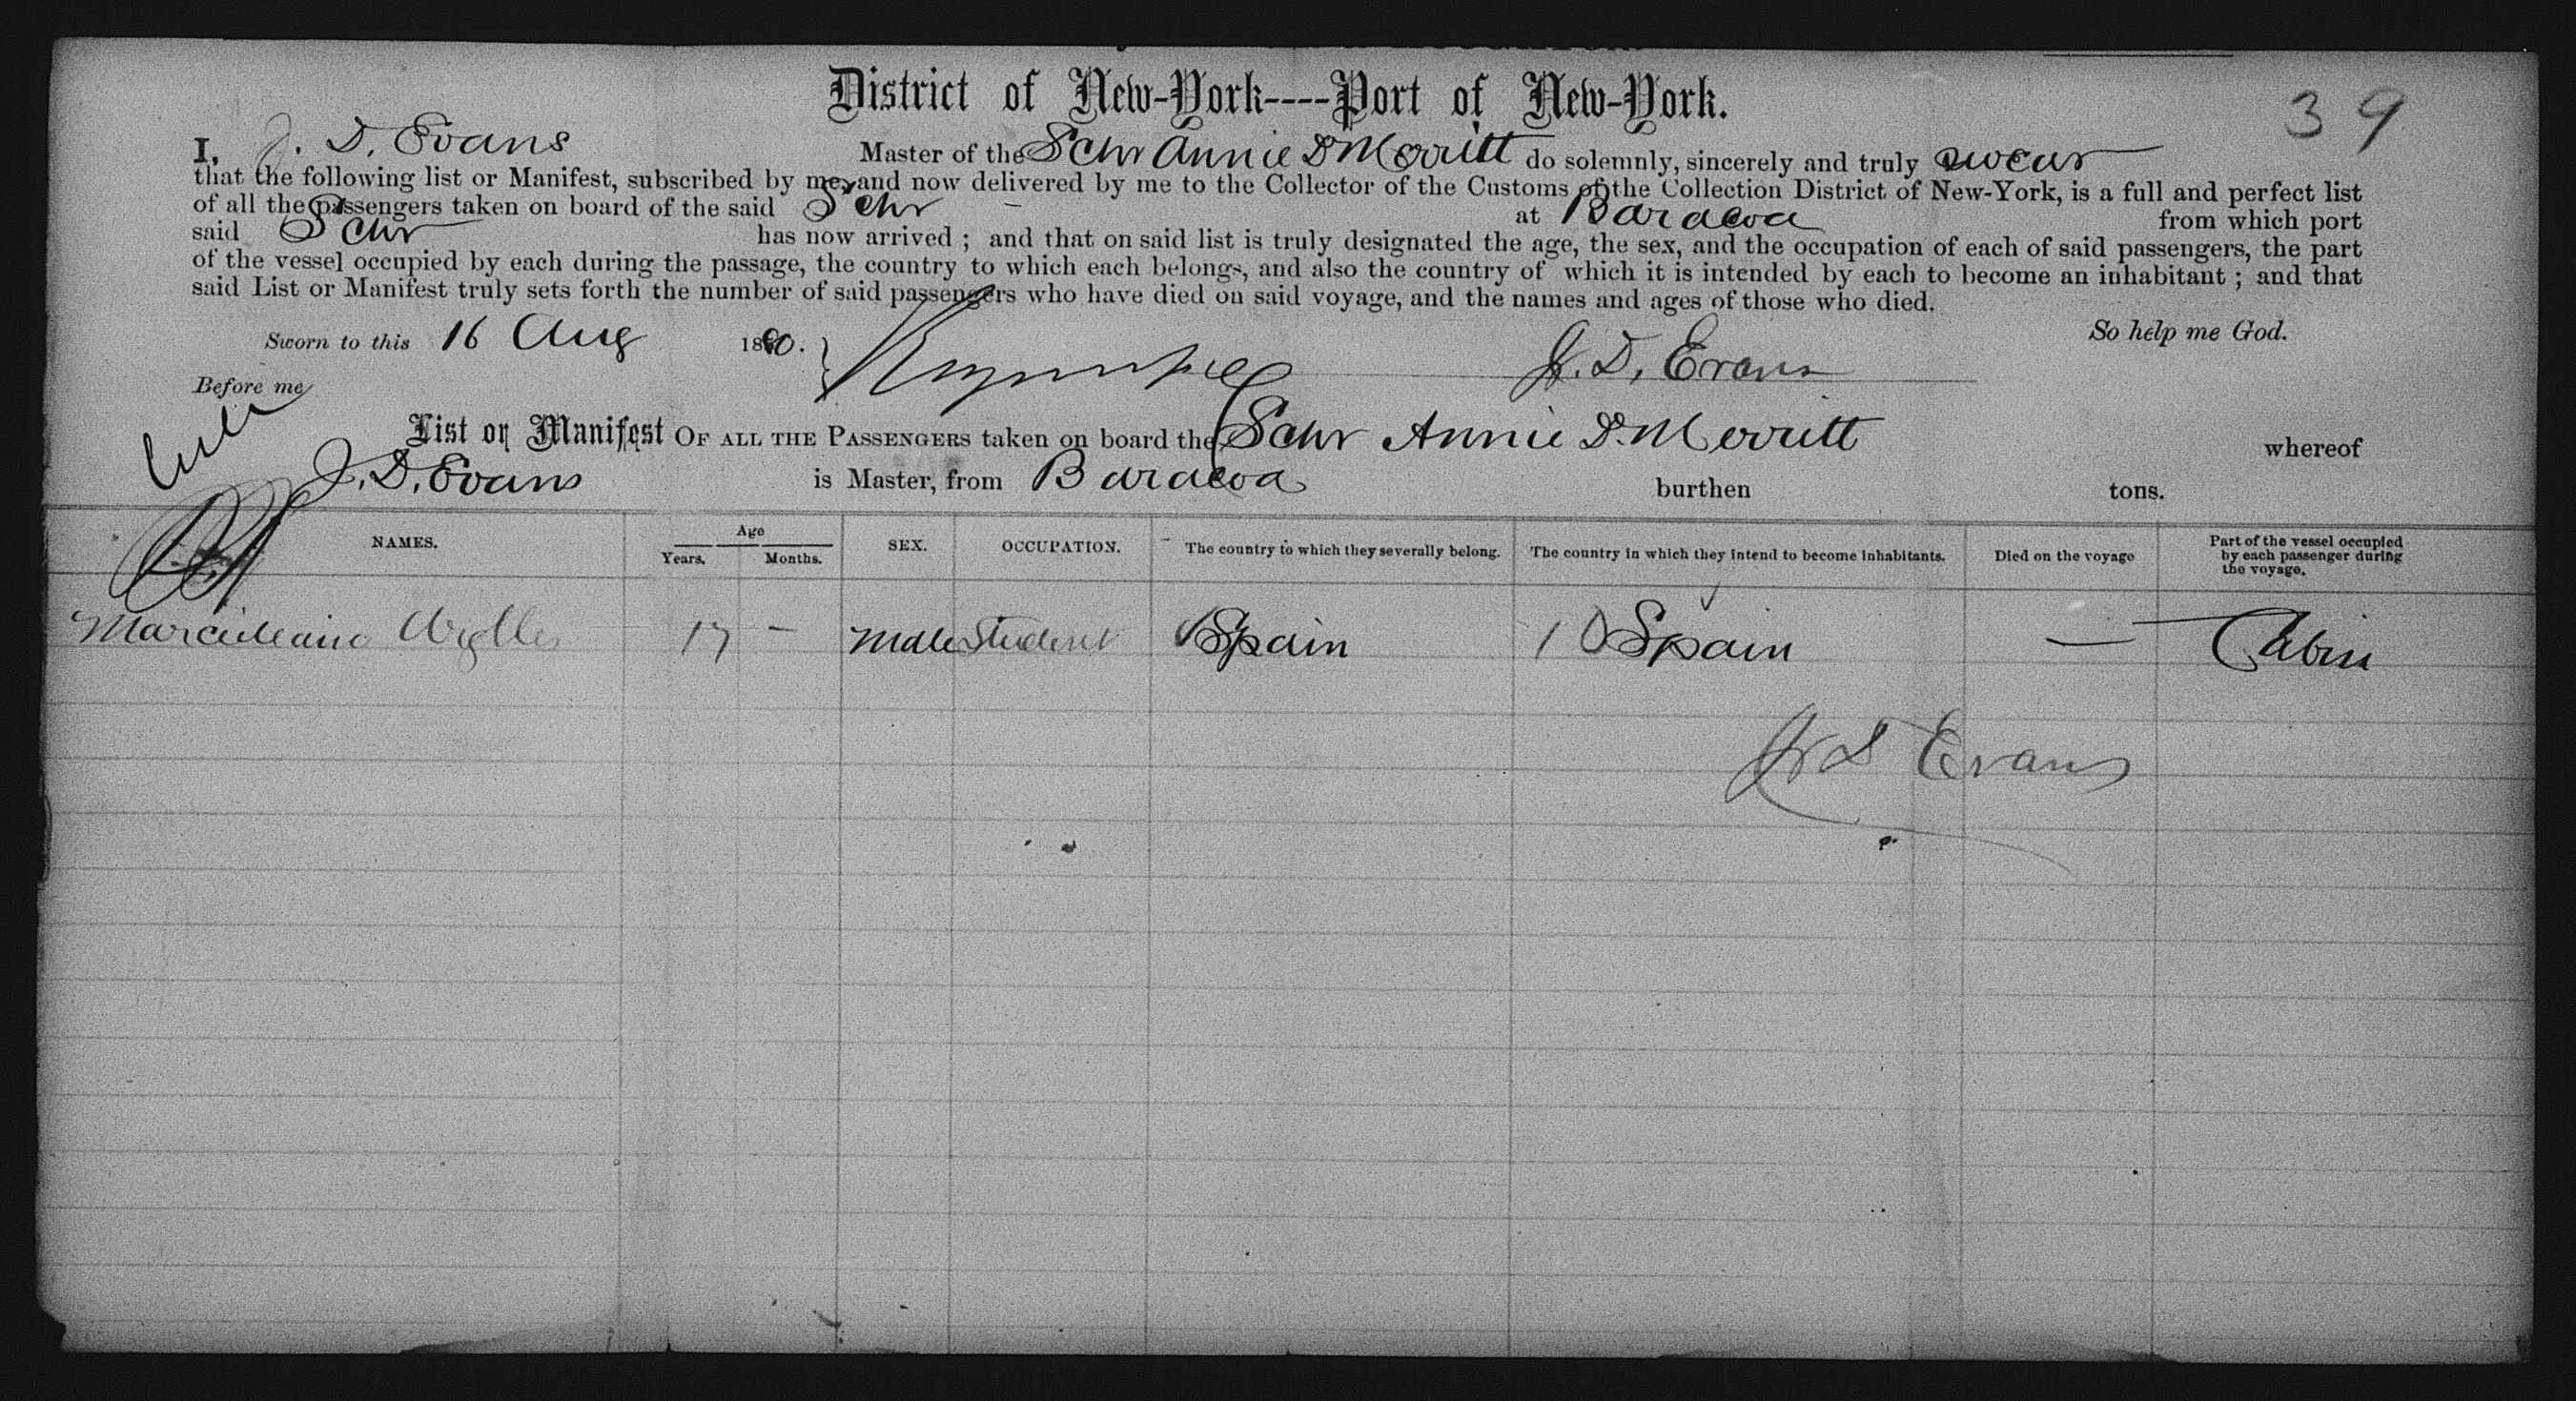 District of New-York----Port of New-York.
39
I, J. D. Evans Master of the Schr Annie D Merritt do solemnly, sincerely and truly swear
that the following list or Manifest, subscribed by me, and now delivered by me to the Collector of the Customs of the Collection District of New-York, is a full and perfect list
of all the passengers taken on board of the said Schr at Baracoa from which port
said Schr has now arrived ; and that on said list is truly designated the age, the sex, and the occupation of each of said passengers, the part
of the vessel occupied by each during the passage, the country to which each belongs, and also the country of which it is intended by each to become an inhabitant ; and that
said List or Manifest truly sets forth the number of said passengers who have died on said voyage, and the names and ages of those who died.
So help me God.
Sworn to this 16 Aug 1880. J. D. Evans
Before me
List or Manifest OF ALL THE PASSENGERS taken on board the Schr Annie D. Merritt whereof
J. D. Evans is Master, from Baracoa burthen tons.
NAMES. Age Years. Months. SEX. OCCUPATION. The country to which they severally belong. The country in which they intend to become inhabitants. Died on the voyage Part of the vessel occupied by each passenger during the voyage.
17 — Male Student Spain 10 Spain — Cabin
J D Evans